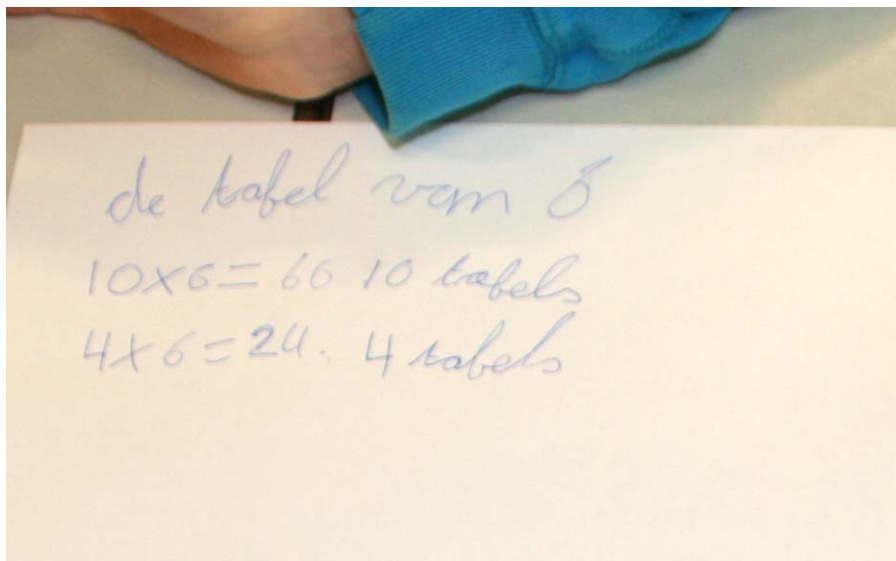 de tafel van 6
10x6=60 10 tabels
4x6=24. 4 tabels